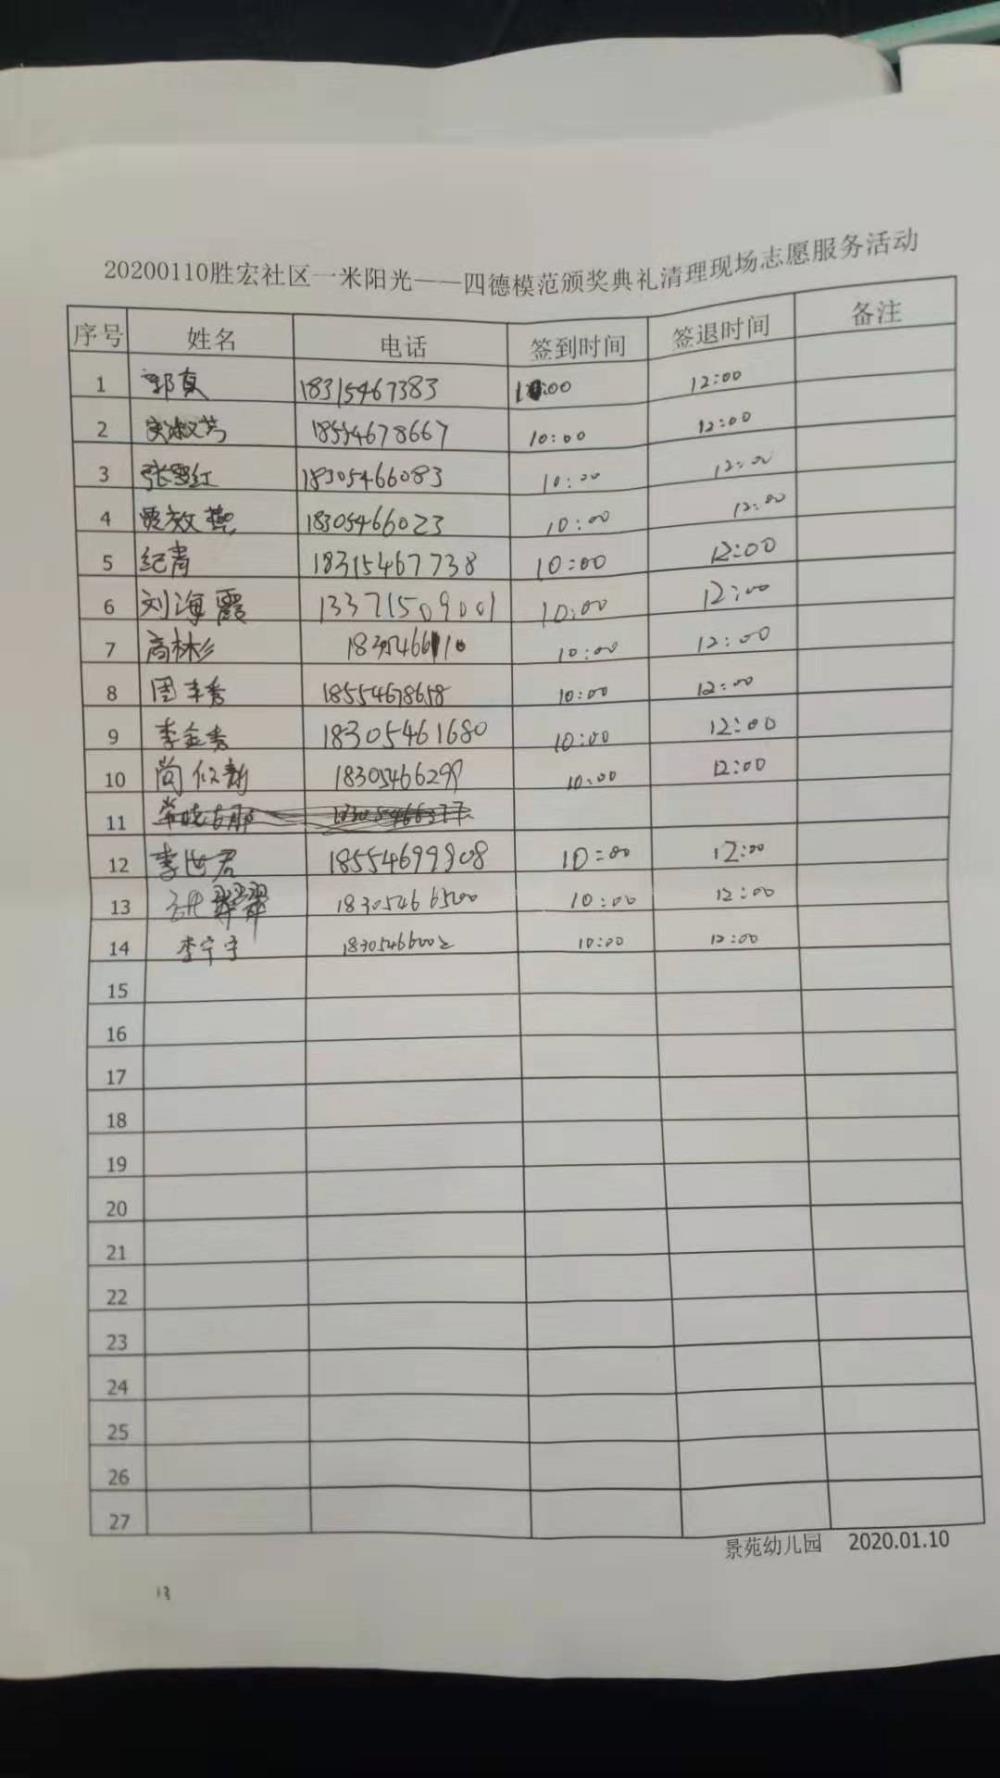 20200110胜宏社区一米阳光——四德模范颁奖典礼清理现场志愿服务活动
序号 姓名 电话 签到时间 签退时间 备注
1 郭真 18315467383 10:00 12:00
2 18554678667 10:00 12:00
3 张雪红 18305466083 10:00 12:00
4 贾效燕 18305466023 10:00 12:00
5 纪青 18315467738 10:00 12:00
6 刘海霞 13371509001 10:00 12:00
7 高林杉 10:00 12:00
8 周丰秀 18554678658 10:00 12:00
9 李金秀 18305461680 10:00 12:00
10 尚欣新 18305466299 10:00 12:00
11 18305466377
12 李世君 18554699908 10:00 12:00
13 翠翠 18305466500 10:00 12:00
14 李宁宁 18305466002 10:00 12:00
15
16
17
18
19
20
21
22
23
24
25
26
27
景苑幼儿园 2020.01.10
13